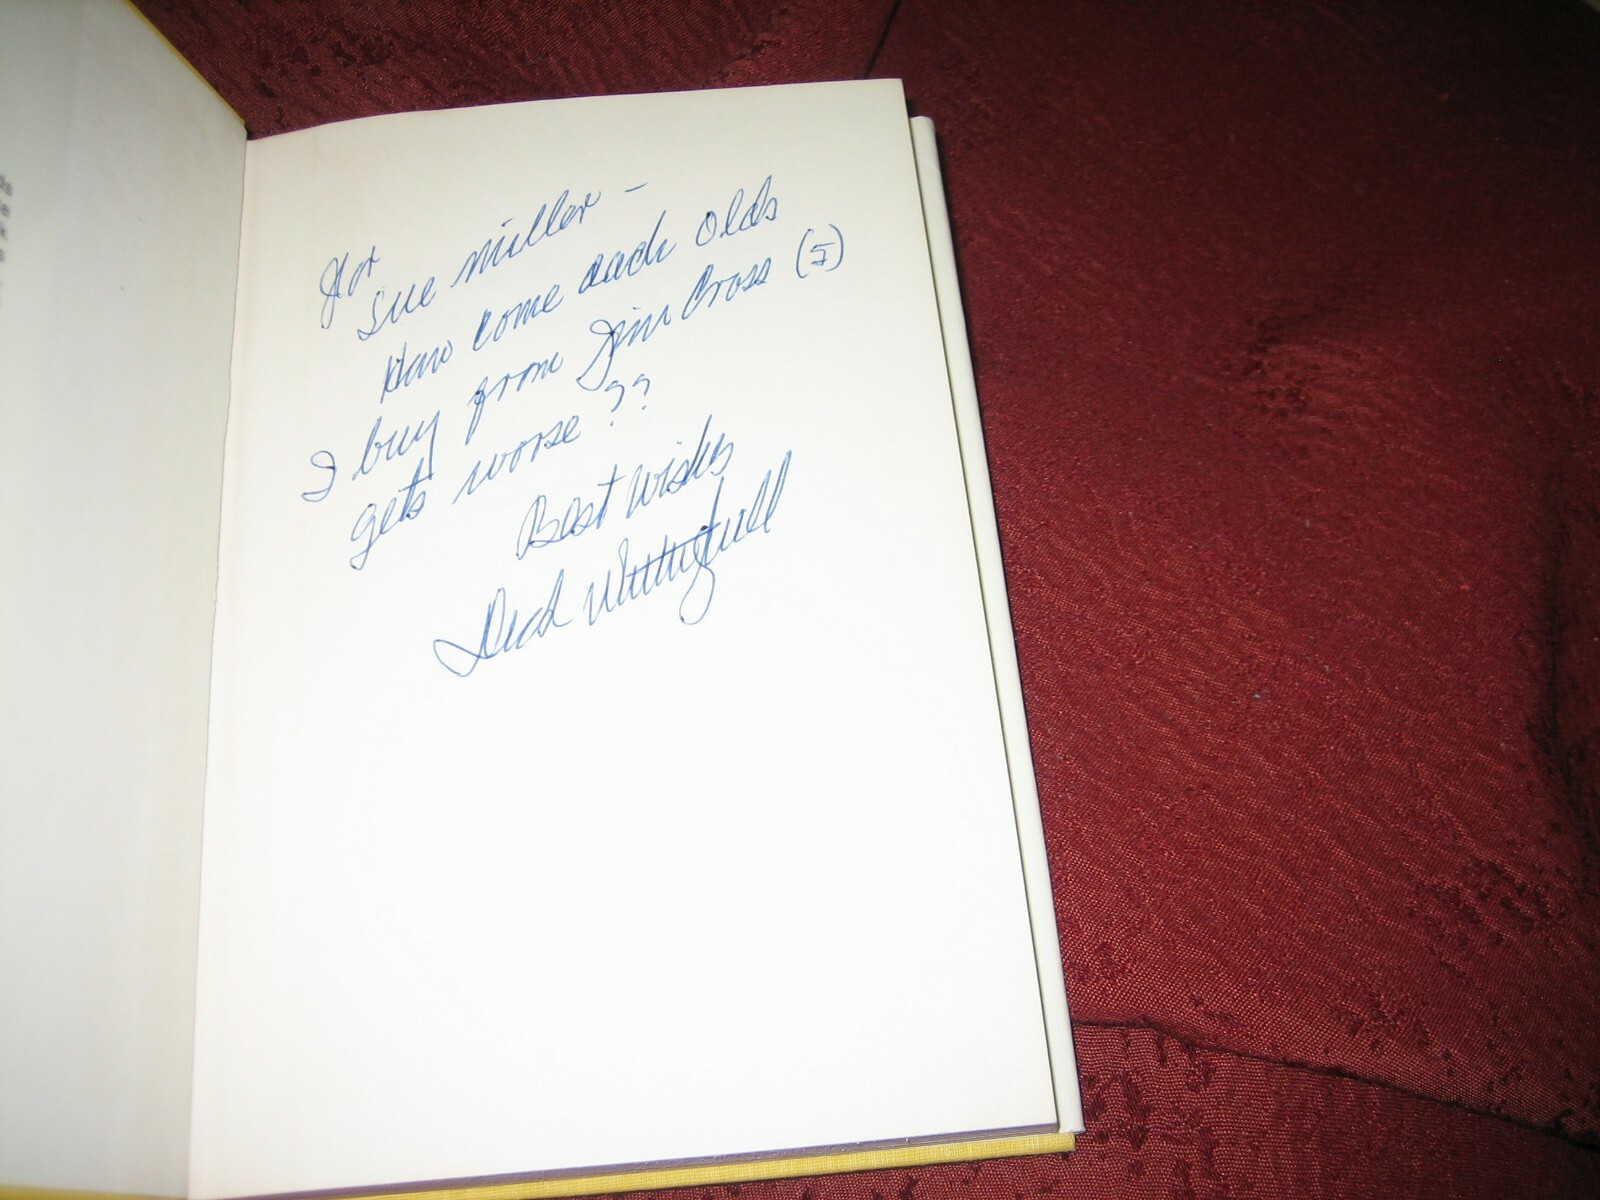 For
Sue Miller -
How come each Olds
I buy from Jim Cross (5)
gets worse ??
Best Wishes
Dick Wittingill